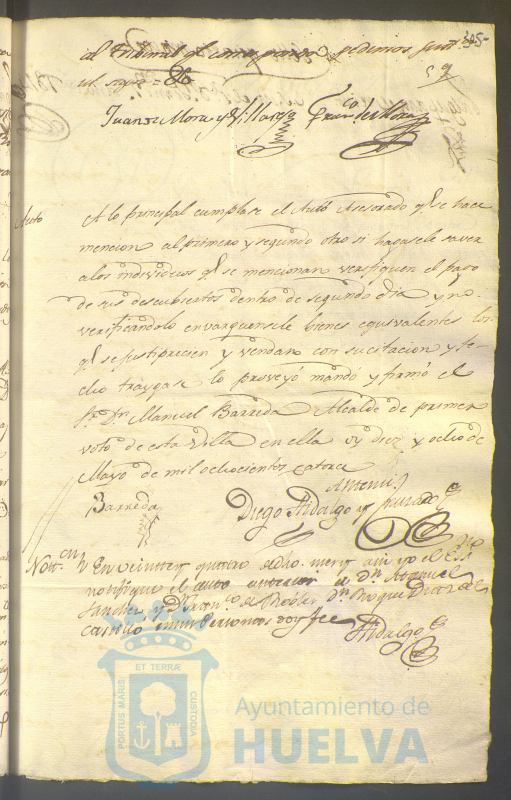 305-
al Tribunal q.l corresponda pedimos just.ª
ut supra
Juan de Mora y Villar Fran.co de Mora
Auto
A lo principal cumplase el Auto Asesorado q.l se hace
mencion al primero y segundo otro si hagasele saver
a los individuos q.l se mencionan verifiquen el pago
de sus descubiertos dentro de segundo dia y no
verificandolo envarguensele bienes equivalentes los
q.l se justiprecien y vendan con su citacion y fe-
cho traygase lo proveyó mandó y firmó el
S.r D.n Manuel Barreda Alcalde de primer
voto de esta Villa en ella oy diez y ocho de
Mayo de mil ochocientos catorce
Barreda
Antemi
Diego Hidalgo y
Nott.on
En veinte y quatro de dho. mes y año yo el Ess.no
notifique el auto anterior a D.n Manuel
Sanchez y D.n Fran.co de Robles D.n Roque Diaz del
Castillo en sus Personas doy fee
Hidalgo
ET TERRÆ
PORTUS MARIS
CUSTODIA
Ayuntamiento de
HUELVA